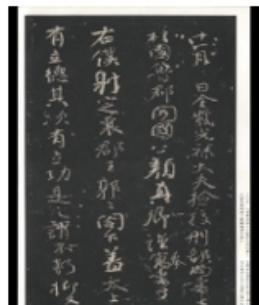 十一月日金紫光祿大夫檢挍刑部尚書上
柱國魯郡開國公顏真卿謹寓書于
右僕射定襄郡王郭公閣下蓋太上
有立德其次有立功是之謂不朽抑又